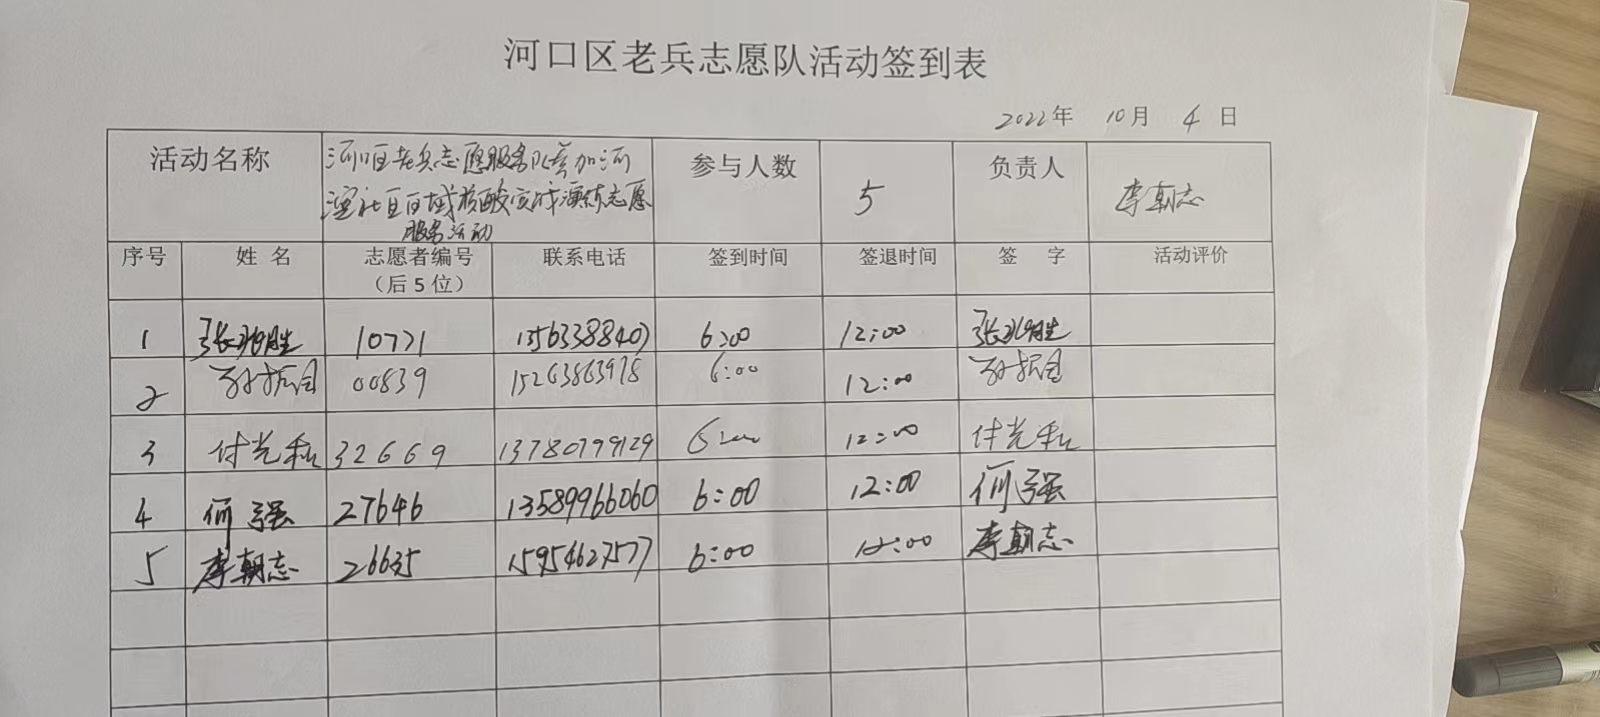 河口区老兵志愿队活动签到表
2022年 10月 4日
活动名称 河口区老兵志愿服务队参加河滨社区区域核酸实战演练志愿服务活动 参与人数 5 负责人 李朝志
序号 姓名 志愿者编号（后5位） 联系电话 签到时间 签退时间 签字 活动评价
1 张 胜 10771 6:00 12:00 张 胜
2 孙振国 00839 15263863978 6:00 12:00 孙振国
3 付光和 32669 13780799129 6:00 12:00 付光和
4 何强 27646 13589966060 6:00 12:00 何强
5 李朝志 26635 15954627577 6:00 12:00 李朝志